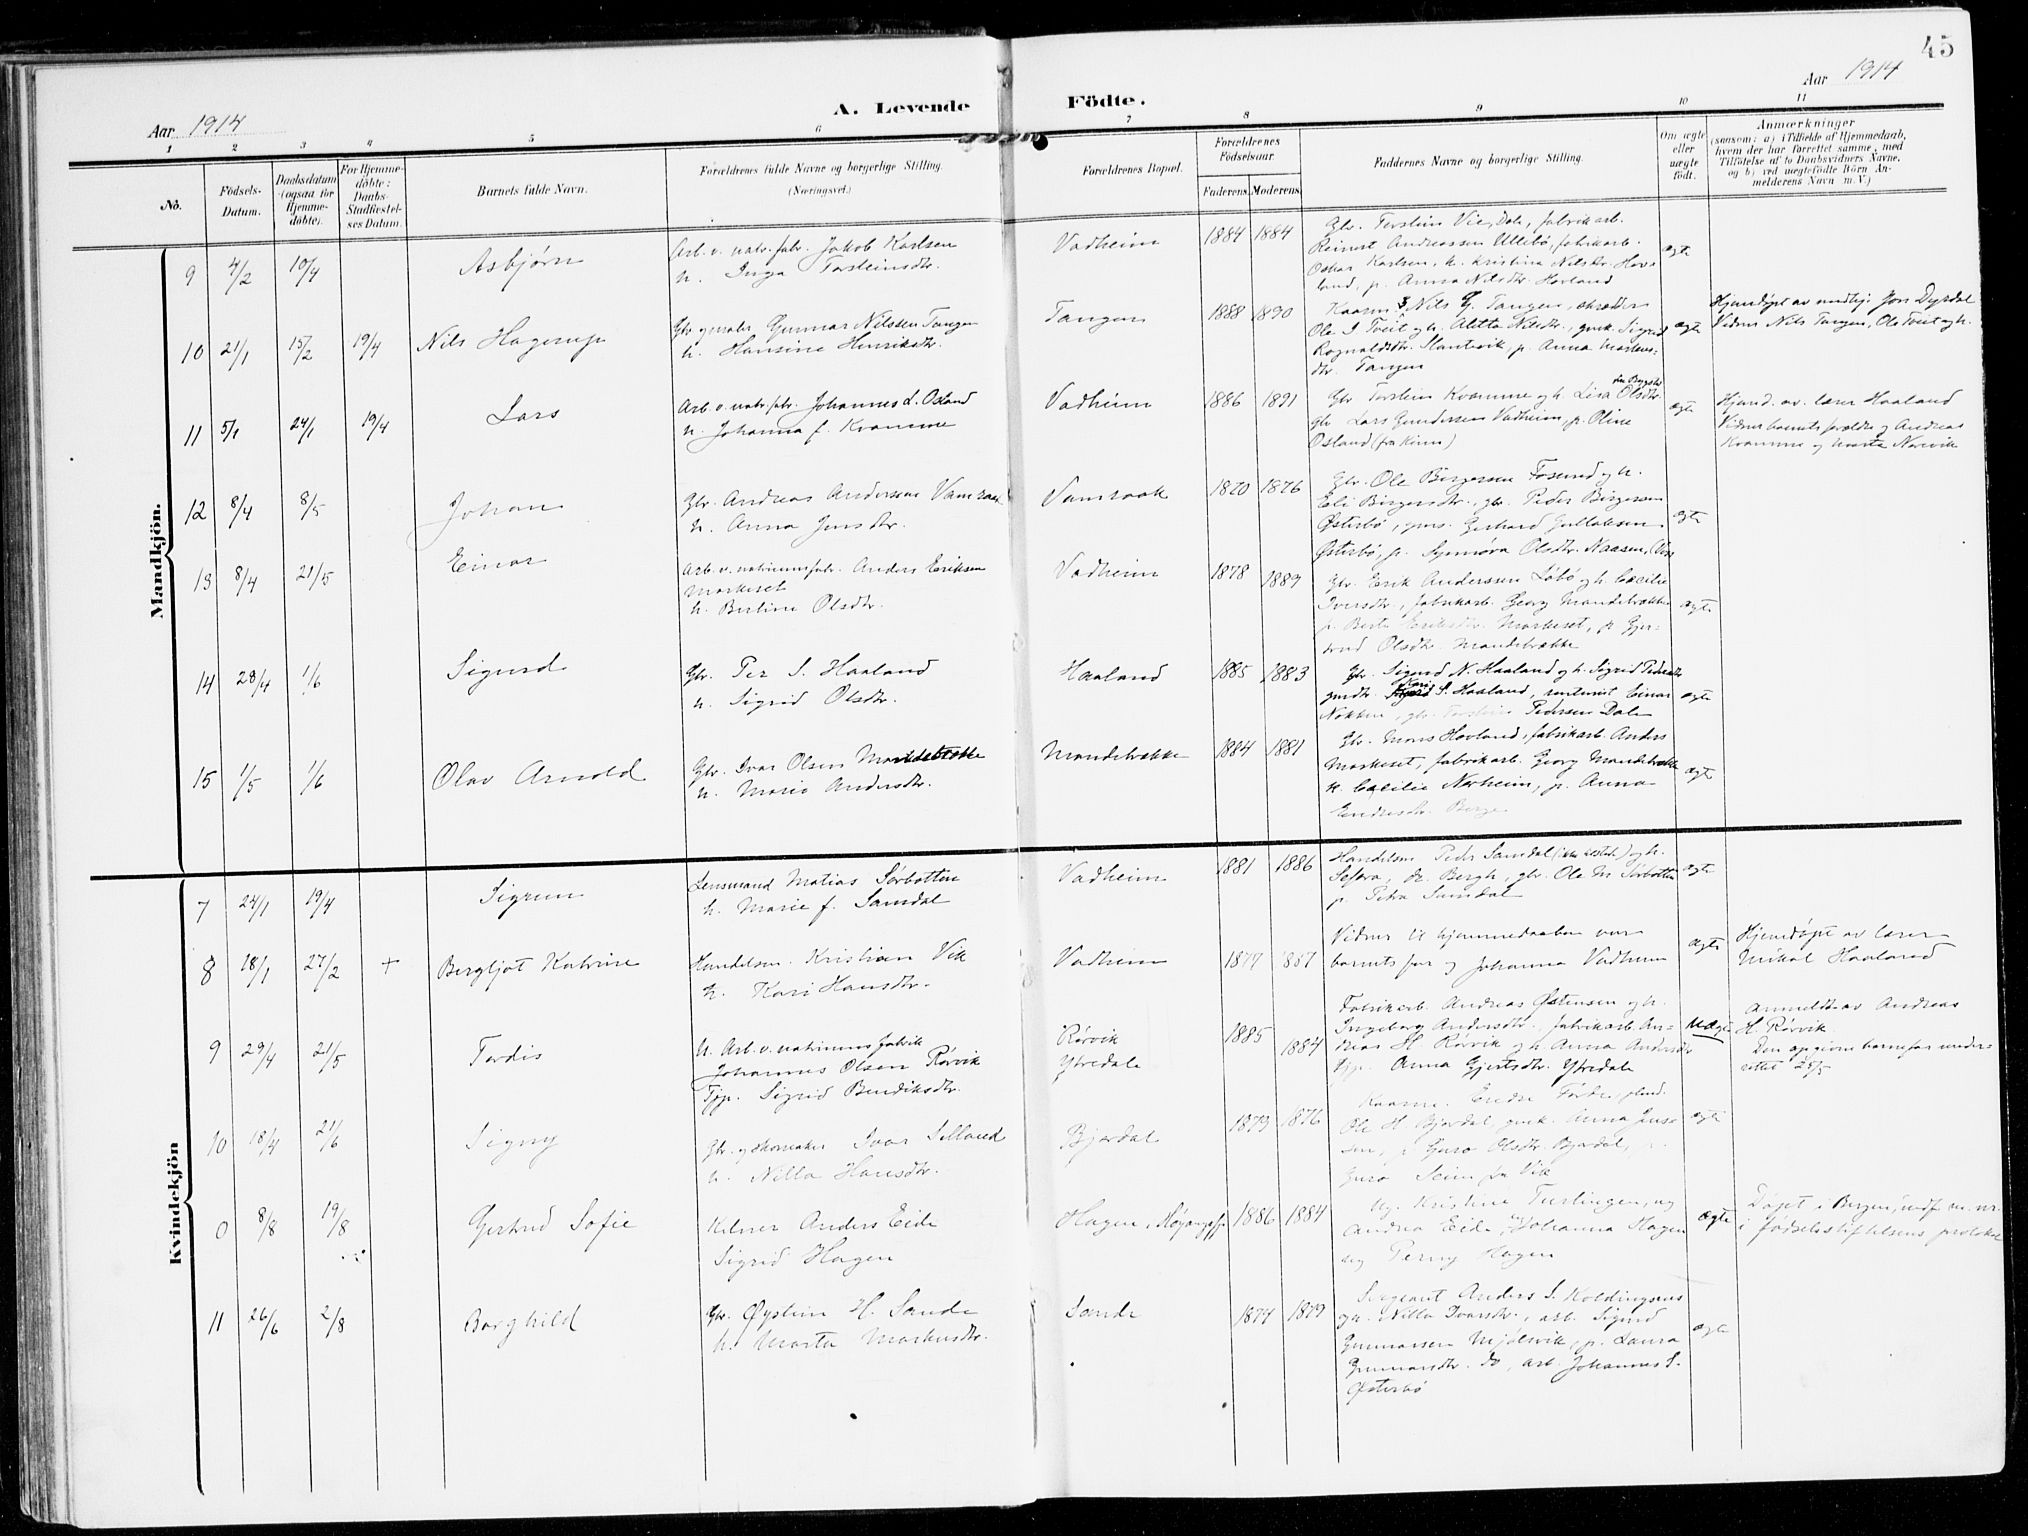 45
Aar 1914
A. Levende Födte.
Aar 1914
1 2 3 4 5 6 7 8 9 10 11
No.
Födsels-Datum.
Daabsdatum (ogsaa for Hjemme-döbte).
For Hjemme-döbte: Daabs-Stadfæstel-ses Datum.
Barnets fulde Navn.
Forældrenes fulde Navne og borgerlige Stilling. (Næringsvei.)
Forældrenes Bopæl.
Forældrenes Födselsaar.
Faderens. Moderens.
Faddernes Navne og borgerlige Stilling.
Om ægte eller uægte födt.
Anmærkninger
(saasom: a) i Tilfælde af Hjemmedaab,
hvem der har forrettet samme, med
Tilföielse af to Daabsvidners Navne,
og b) ved uægtefödte Börn An-
melderens Navn m. V.)
Mandkjön.
9 4/2 10/4 Asbjørn
Arb. v. natr. fabr. Jakob Karlsen
h. Inga Torsteinsdtr.
Vadheim 1884 1884
Gbr. Torstein Vie, Dale, fabrikarb.
Reinert Andreassen Ullebø, fabrikarb.
Oskar Karlsen, h. Kristina Nilsdtr. Hov-
land, p. Anna Nilsdtr. Hovland
ægte
10 21/1 15/2 19/4 Nils Hagerup
Gbr og maler Gunnar Nilssen Tangen
h. Hansine Henriksdtr.
Tangen 1888 1890
Kaarm. Nils G. Tangen, skrædder
Ole J Tveit og h. Aletta Nilsdtr., gmk. Sigrid
Ragnaldsdtr. , p. Anna Martens-
dtr. Tangen
ægte
Hjemdøpt av Jon Dyrdal
Vidner Nils Tangen, Ole Tveit og h.
11 5/1 24/1 19/4 Lars
Arb. v. natr. fabr. Johannes L. Osland
h. Johanna f. Kvamme
Vadheim 1886 1891
Gbr Torstein Kvamme og h. Lisa Olsdtr.
gbr Lars Gundersen Vadheim, p. Oline
Osland (fra Kinn)
ægte
Hjemd. av lærer Haaland
Vidner barnets forældre og Andreas
Kvamme og Marta Norevik
12 8/4 8/5 Johan
Gbr. Andreas Anderssen Vamraak
h. Anna Jensdtr.
Vamraak 1870 1876
Gbr. Ole Børgersen Fosund og h.
Eli Birgersdtr., gbr. Peder Birgersen
Østerbø, gms. Gerhard Gullaksen
Østerbø, p. Synnøva Olsdtr. Naasen,
ægte
13 8/4 21/5 Einar
Arb. v. natriumsfabr. Anders Eriksen
Markeset
h. Bertine Olsdtr.
Vadheim 1878 1889
Gbr. Erik Anderssen Løbø og h. Cecilie
Iversdtr., fabrikarb. Georg Mandelrække
p. Berta Eriksdtr. Markeset, p. Gjer-
trud Olsdtr. Mandelrække
ægte
14 28/4 1/6 Sigurd
Gbr. Per S. Haaland
h. Sigrid Olsdtr.
Haaland 1885 1883
Gbr. Sigurd N. Haaland og h. Sigrid Pedersdtr
gmdtr. Kari S. Haaland, Einar
Nokken, gbr. Torstein Pedersen Dale
ægte
15 1/5 1/6 Olav Arnold
Gbr. Ivar Olsen Mandelrække
h. Marie Andersdtr.
Mandelrække 1884 1881
Gbr. Mons Hovland, fabrikarb. Anders
Markeset, fabrikarb. Georg Mandelrække
h. Cecilie Norheim, p. Anna
Endresdtr. Berge
ægte
Kvindekjön
7 24/1 19/4 Sigrun
Lensmand Matias Sørbotten
h. Marie f. Samdal
Vadheim 1881 1886
Handelsm. Peder Samdal (ikke tilstede) og h.
Sefora, dr. Bergh, gbr. Ole M Sørbotten
p. Petra Samdal
ægte
8 18/1 27/2 + Bergljot Katrine
Handelsm. Kristian Vik
h. Kari Hansdtr.
Vadheim 1877 1887
Vidner til hjemmedaaben var
barnets far og Johanna Vadheim
ægte
Hjemdøpt av lærer
Mikal Haaland
9 29/4 21/5 Tordis
U. Arb. v. natriumsfabrik
Johannes Olsen Rørvik
Tjp. Sigrid Bendiksdtr.
Rørvik
Ytredale
1885 1884
Fabrikarb. Andreas Østensen og h.
Ingeborg Andersdtr., fabrikarb. An-
dreas H Rørvik og h. Anna Andersdtr
Tjp. Anna Gjertsdtr. Ytredale
uægte
Anmeldt av Andreas
H. Rørvik.
Den opgivne barnefar under-
rettet 25/5
10 18/4 21/6 Signy
Gbr. og skomaker Ivar Silland
h. Nilla Hansdtr.
Bjordal 1879 1876
Kaarm. Endre Førde,
Ole H Bjordal, gmk. Anna Jens-
sen, p Guro Olsdtr. Bjordal, p.
Guro Seim fra Vik
ægte
0 8/8 19/8 Gertrud Sofie
Kelner Anders Eide
Sigrid Hagen
Hagen, 1886 1884
Kristine og
Andrea Eide, Johanna Hagen
og Perny Hagen
ægte
Døpt i Bergen, indf. u. nr.
i fødselsstiftelsens protokol
11 26/6 2/8 Borghild
Gbr. Øystein H. Sande
h. Marta Markusdtr.
Sande 1874 1879
Sergeant Anders S. Koldingsnes
og h. Nilla Ivarsdtr., arb. Sigurd
Gunnarsen Mjølsvik, p. Laura
Gunnarsdtr. do, arb. Johannes S.
Østerbø
ægte